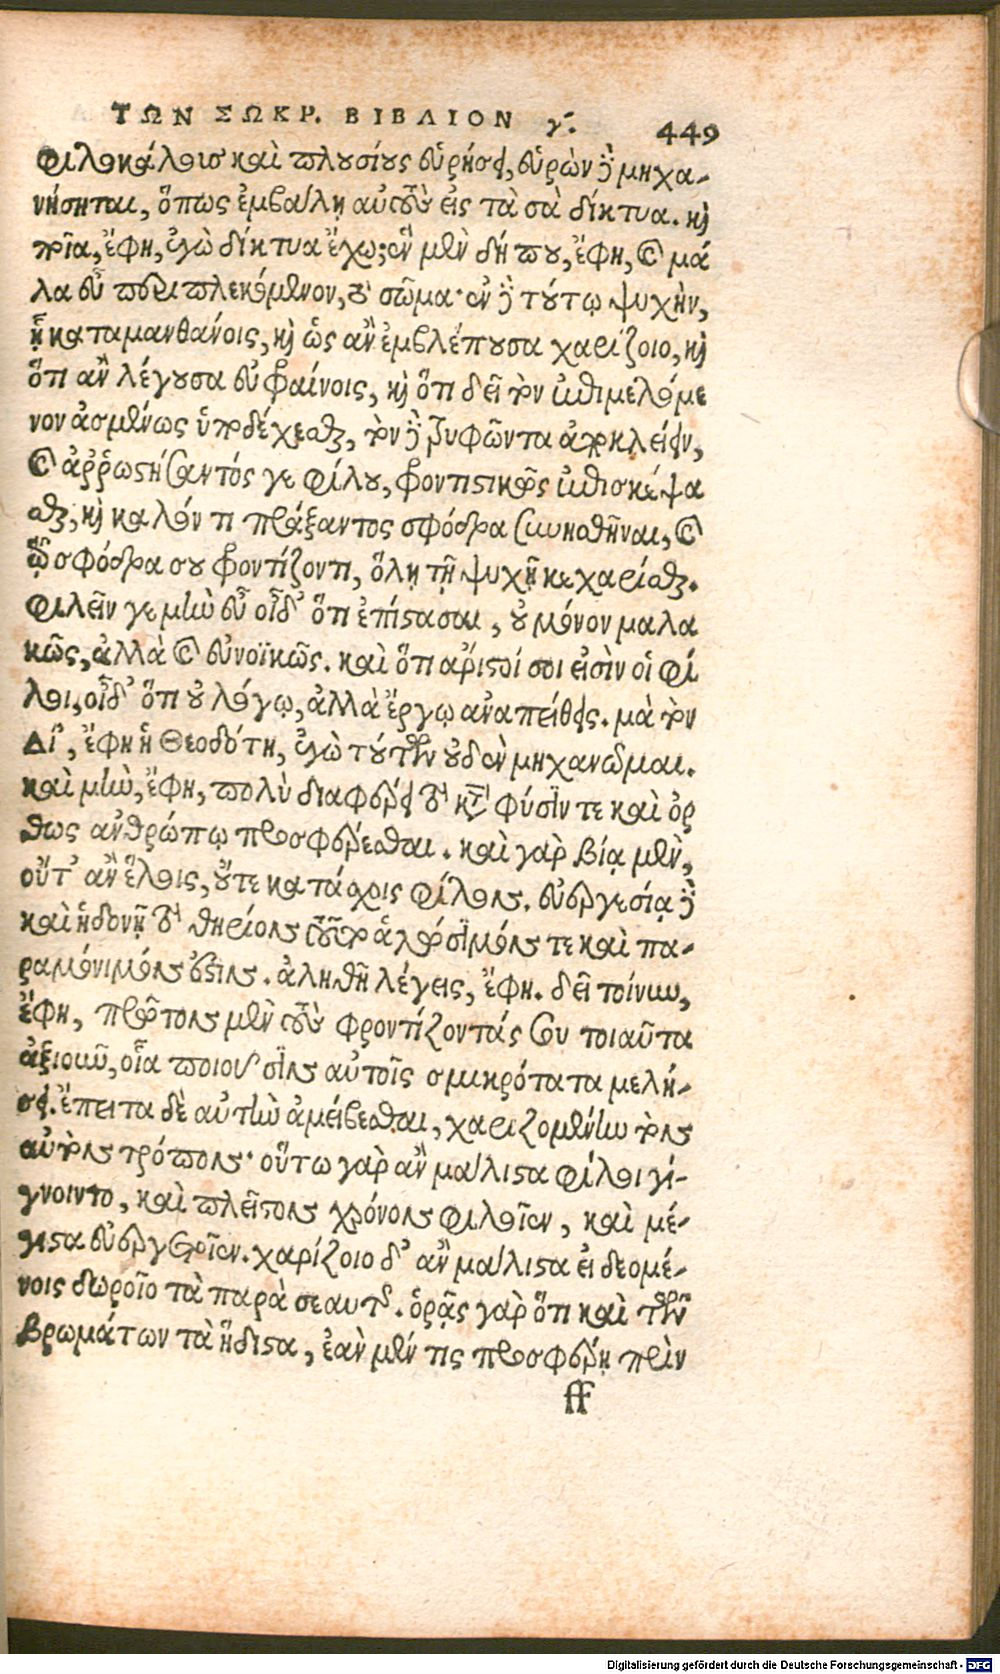 ΤΩΝ ΣΩΚΡ. ΒΙΒΛΙΟΝ γʹ. 449
φιλοκάλοις καὶ πλουσίους εὑρήσει, εὑρὼν δὲ μηχα-
νήσηται, ὅπως ἐμβάλῃ αὐτοὺς εἰς τὰ σὰ δίκτυα. καὶ
ποῖα, ἔφη, ἐγὼ δίκτυα ἔχω; ἓν μὲν δή που, ἔφη, καὶ μά
λα εὖ περιπλεκόμενον, τὸ σῶμα· ἐν δὲ τούτῳ ψυχὴν,
ᾗ καταμανθάνοις, καὶ ὡς ἂν ἐμβλέπουσα χαρίζοιο, καὶ
ὅτι ἂν λέγουσα εὐφραίνοις, καὶ ὅτι δεῖ τὸν ἐπιμελόμε
νον ἀσμένως ὑποδέχεσθαι, τὸν δὲ τρυφῶντα ἀποκλείειν,
καὶ ἀῤῥωστήσαντός γε φίλου, φροντιστικῶς ἐπισκέψα
σθαι, καὶ καλόν τι πράξαντος σφόδρα συνησθῆναι, καὶ
τῷ σφόδρα σου φροντίζοντι, ὅλῃ τῇ ψυχῇ κεχαρίσθαι.
φιλεῖν γε μὴν εὖ οἶδ' ὅτι ἐπίστασαι, οὐ μόνον μαλα
κῶς, ἀλλὰ καὶ εὐνοϊκῶς. καὶ ὅτι ἀρίστοί σοι εἰσὶν οἱ φί
λοι, οἶδ' ὅτι οὐ λόγῳ, ἀλλὰ ἔργῳ ἀναπείθεις. μὰ τὸν
Δί', ἔφη ἡ Θεοδότη, ἐγὼ τούτων οὐδὲν μηχανῶμαι.
καὶ μὴν, ἔφη, πολὺ διαφέρει τὸ κατὰ φύσιν τε καὶ ὀρ
θῶς ἀνθρώπῳ προσφέρεσθαι. καὶ γὰρ βίᾳ μὲν,
οὔτ' ἂν ἕλοις, οὔτε κατάσχοις φίλον. εὐεργεσίᾳ δὲ
καὶ ἡδονῇ τὸ θηρίον τοῦτο ἁλώσιμόν τε καὶ πα-
ραμόνιμόν ἐστιν. ἀληθῆ λέγεις, ἔφη. δεῖ τοίνυν,
ἔφη, πρῶτον μὲν τοὺς φροντίζοντάς σου τοιαῦτα
ἀξιοῦν, οἷα ποιοῦσιν αὐτοῖς σμικρότατα μελή-
σει. ἔπειτα δὲ αὐτὴν ἀμείβεσθαι, χαριζομένην τὸν
αὐτὸν τρόπον· οὕτω γὰρ ἂν μάλιστα φίλοι γί-
γνοιντο, καὶ πλεῖστον χρόνον φιλοῖεν, καὶ μέ-
γιστα εὐεργετοῖεν. χαρίζοιο δ' ἂν μάλιστα εἰ δεομέ-
νοις δωροῖο τὰ παρὰ σεαυτῆς. ὁρᾷς γὰρ ὅτι καὶ τῶν
βρωμάτων τὰ ἥδιστα, ἐὰν μέν τις προσφέρῃ πρὶν
ff
Digitalisierung gefördert durch die Deutsche Forschungsgemeinschaft - DFG